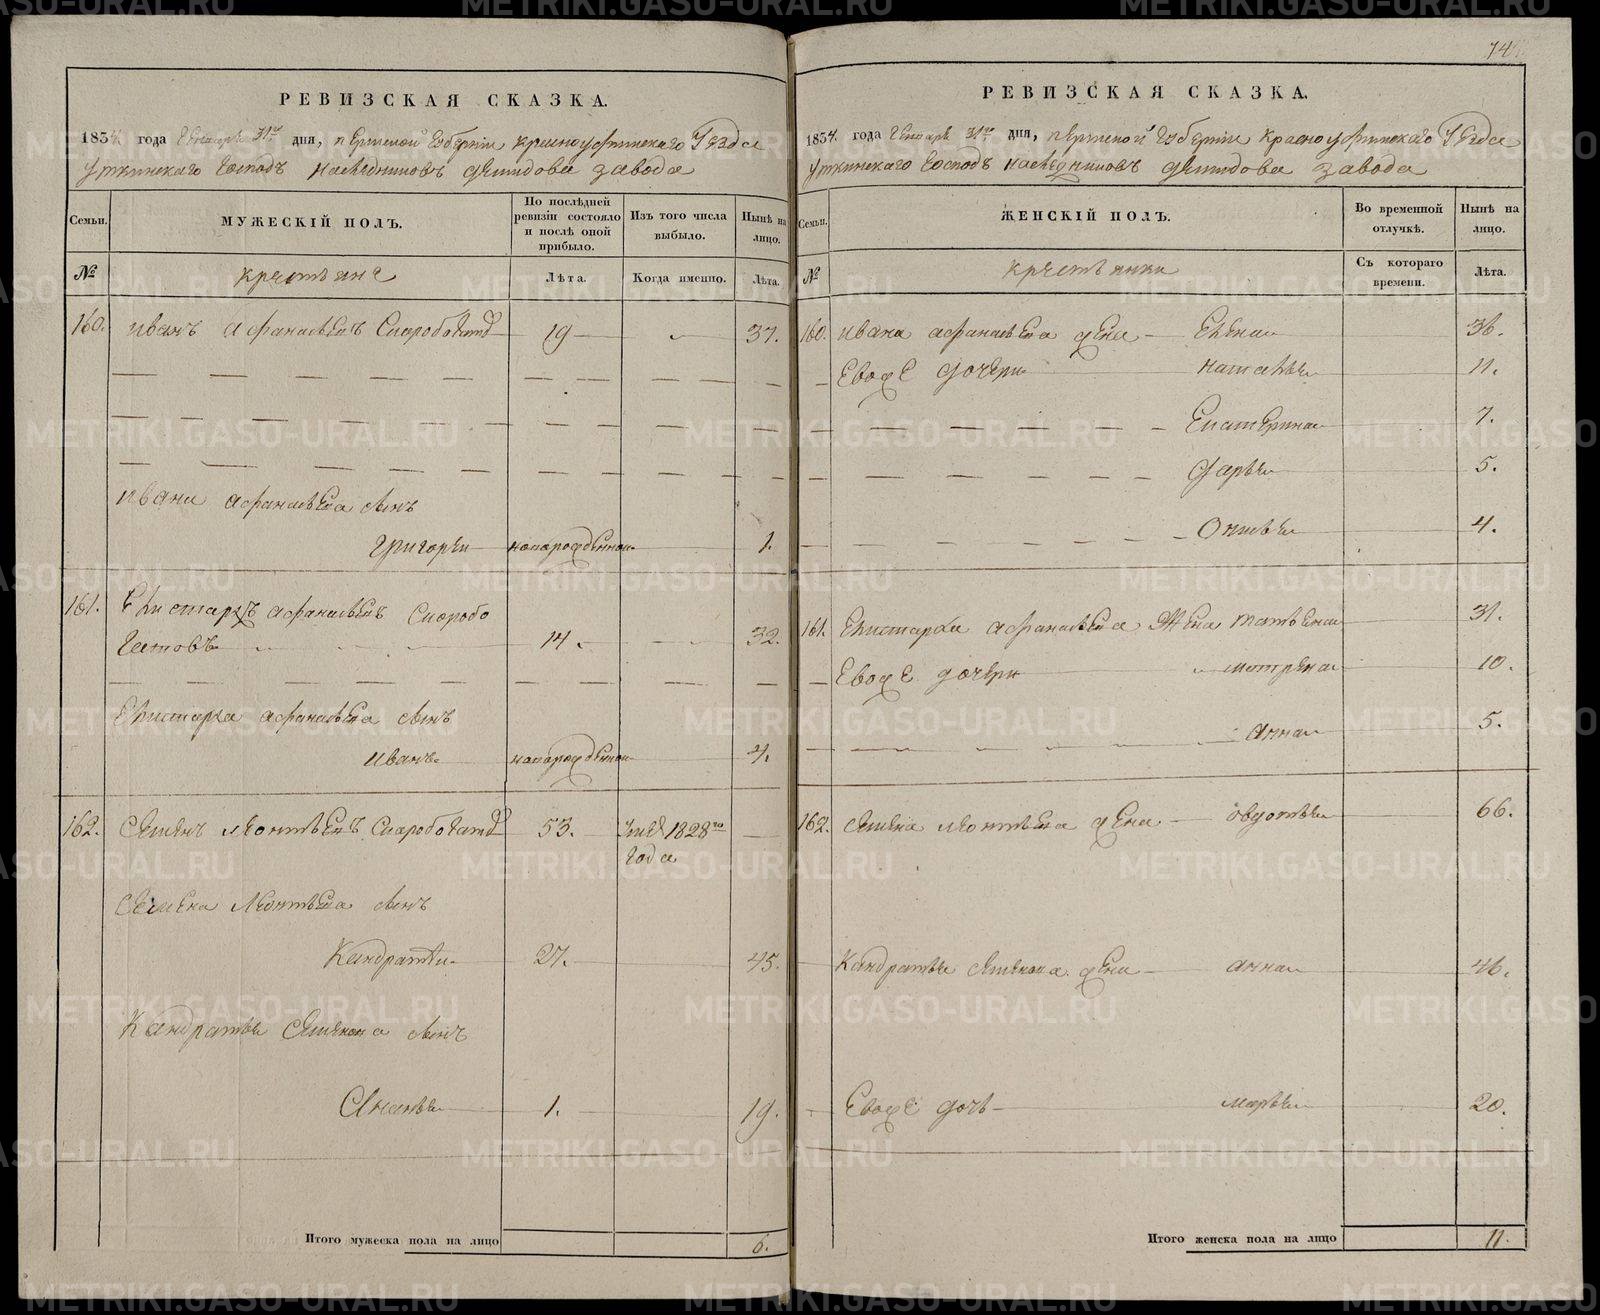 74
РЕВИЗСКАЯ СКАЗКА.
1834 года Генваря 31го дня, Пермской Губерніи Красноуфимскаго Уезда
Уткинскаго Господъ Наследниковъ Демидова завода
Семьи.
МУЖЕСКІЙ ПОЛЪ.
По послѣдней ревизіи состояло и послѣ оной прибыло.
Изъ того числа выбыло.
Нынѣ на лицо.
№
крестьяне
Лѣта.
Когда именно.
Лѣта.
160. Иванъ Афанасьевъ Скоробогатов 19 37.
Ивана Афанасьева сынъ
Григорей новорожденной 1.
161. Елистархъ Афанасьевъ Скоробо
гатовъ 14. 32.
Елистарха Афанасьева сынъ
Иванъ новорожденной 4.
162. Семенъ Леонтьевъ Скоробогатов 53. Умер 1828го
года
Семена Леонтьева сынъ
Кандратей 27. 45.
Кандратья Семенова сынъ
Ананья 1. 19.
Итого мужеска пола на лицо 6.
РЕВИЗСКАЯ СКАЗКА.
1834. года Генваря 31го дня, Пермской Губерніи Красноуфимскаго Уезда
Уткинскаго Господъ Наследниковъ Демидова завода
Семьи.
ЖЕНСКІЙ ПОЛЪ.
Во временной отлучкѣ.
Нынѣ на лицо.
№
крестьянки
Съ котораго времени.
Лѣта.
160. Ивана Афанасьева жена Елена 36.
Евоже дочери Наталья 11.
Екатерина 7.
Дарья 5.
Окинья 4.
161. Елистарха Афанасьева Жена Татьяна 31.
Евоже дочери Матрена 10.
Анна 5.
162. Семена Леонтьева жена Овдотья 66.
Кандратья Семенова жена Анна 46.
Евоже дочь Марья 20.
Итого женска пола на лицо 11.
METRIKI.GASO-URAL.RU